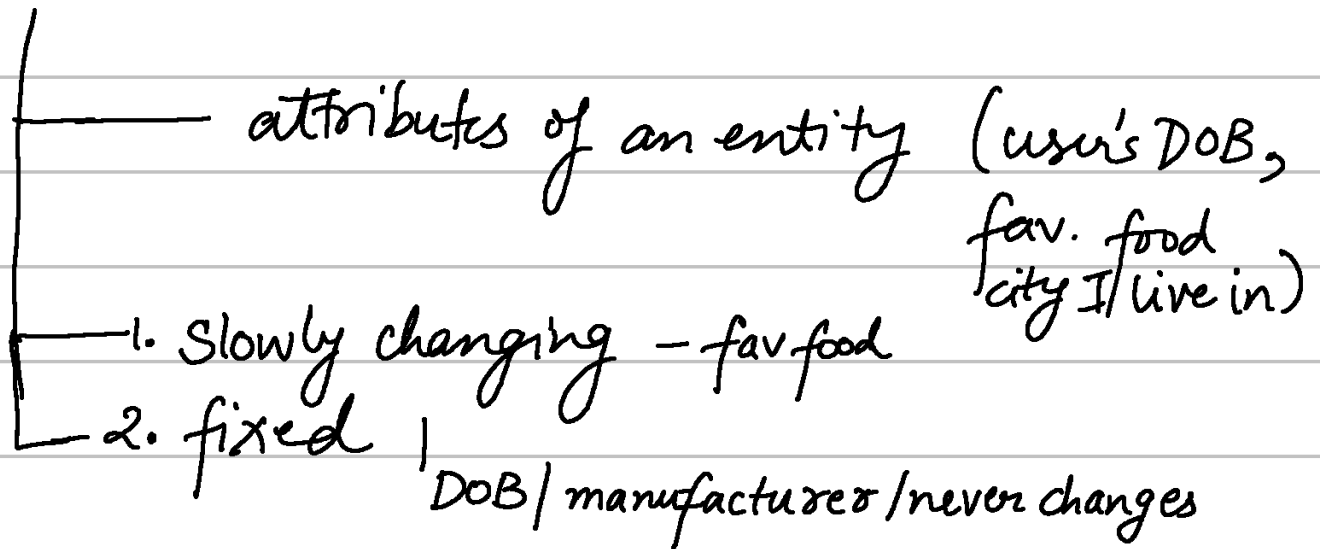 attributes of an entity (user's DOB,
fav. food
city I live in)
1. Slowly changing - fav food
2. fixed
DOB / manufacturer / never changes